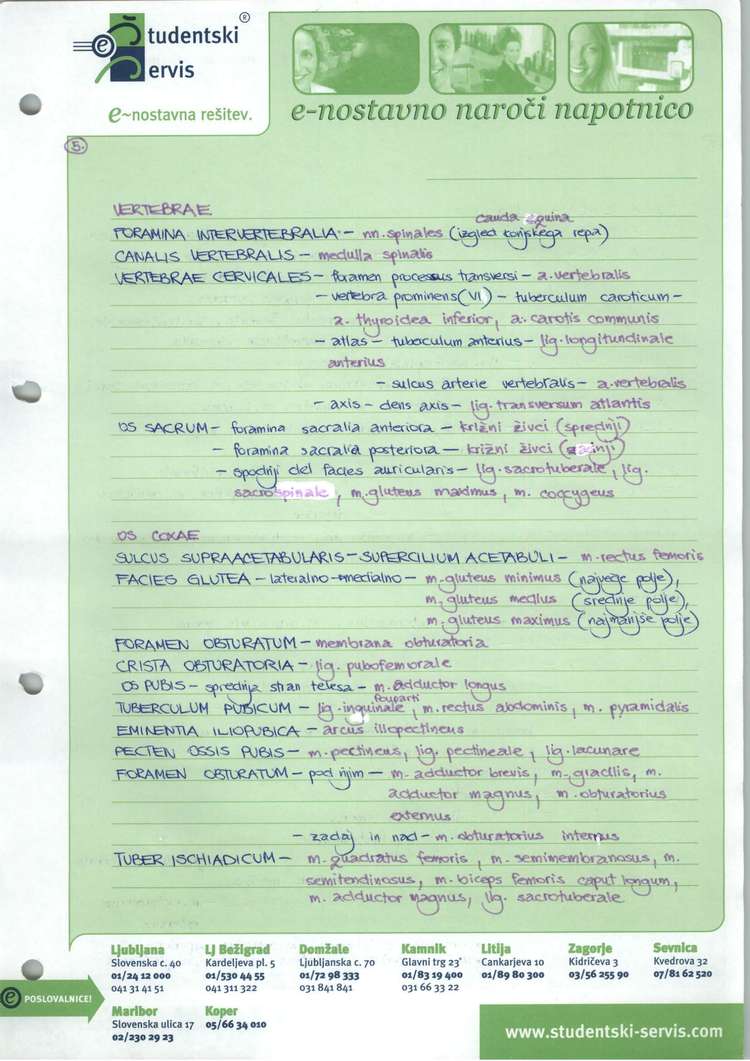 Študentski
Servis
®
e~nostavna rešitev.
e-nostavno naroči napotnico
5.
VERTEBRAE
cauda equina
FORAMINA INTERVERTEBRALIA - nn. spinales (izgled konjskega repa)
CANALIS VERTEBRALIS - medulla spinalis
VERTEBRAE CERVICALES - foramen processus transversi - a. vertebralis
- vertebra prominens (VI) - tuberculum caroticum -
a. thyroidea inferior, a. carotis communis
- atlas - tuberculum anterius - lig. longitundinale
anterius
- sulcus arterie vertebralis - a. vertebralis
- axis - dens axis - lig. transversum atlantis
OS SACRUM - foramina sacralia anteriora - križni živci (sprednji)
- foramina sacralia posteriora - križni živci (zadnji)
- spodnji del facies auricularis - lig. sacrotuberale, lig.
sacrospinale, m. gluteus maximus, m. coccygeus
OS COXAE
SULCUS SUPRAACETABULARIS - SUPERCILIUM ACETABULI - m. rectus femoris
FACIES GLUTEA - lateralno-medialno - m. gluteus minimus (najvege polje),
m. gluteus medius (srednje polje),
m. gluteus maximus (najmanjše polje)
FORAMEN OBTURATUM - membrana obturatoria
CRISTA OBTURATORIA - lig. pubofemorale
OS PUBIS - sprednja stran telesa - m. adductor longus
Pouparti
TUBERCULUM PUBICUM - lig. inguinale, m. rectus abdominis, m. pyramidalis
EMINENTIA ILIOPUBICA - arcus iliopectineus
PECTEN OSSIS PUBIS - m. pectineus, lig. pectineale, lig. lacunare
FORAMEN OBTURATUM - pod njim - m. adductor brevis, m. gracilis, m.
adductor magnus, m. obturatorius
externus
- zadaj in nad - m. obturatorius internus
TUBER ISCHIADICUM - m. quadratus femoris, m. semimembranosus, m.
semitendinosus, m. biceps femoris caput longum,
m. adductor magnus, lig. sacrotuberale
e POSLOVALNICE!
Ljubljana
Slovenska c. 40
01/24 12 000
041 31 41 51
LJ Bežigrad
Kardeljeva pl. 5
01/530 44 55
041 311 322
Domžale
Ljubljanska c. 70
01/72 98 333
031 841 841
Kamnik
Glavni trg 23
01/83 19 400
031 66 33 22
Litija
Cankarjeva 10
01/89 80 300
Zagorje
Kidričeva 3
03/56 255 90
Sevnica
Kvedrova 32
07/81 62 520
Maribor
Slovenska ulica 17
02/230 29 23
Koper
05/66 34 010
www.studentski-servis.com